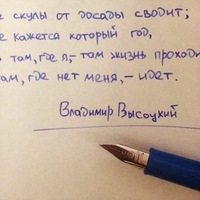 е скулы от досады сводит;
е кажется который год,
там, где я,- там жизнь проходи
там, где нет меня,- идет.
Владимир Высоцкий